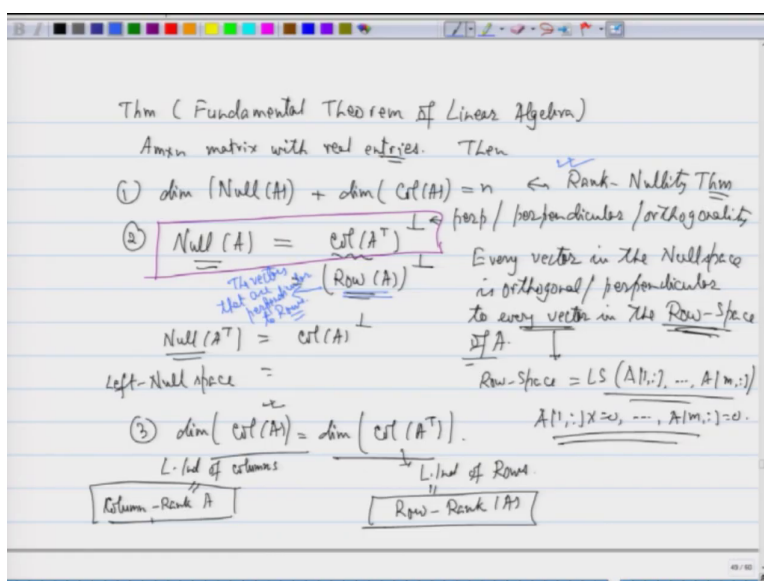 Thm ( Fundamental Theorem of Linear Algebra)
Amxn matrix with real entries. Then
① dim (Null(A)) + dim( Col(A)) = n ← Rank-Nullity Thm
② Null (A) = Col(Aᵀ)^⊥ ← perp/ perpendicular /orthogonality
(Row (A))^⊥
The vectors that are perpendicular to Rows
Every vector in the Nullspace
is orthogonal/ perpendicular
to every vector in the Row-Space
of A.
Null(Aᵀ) = Col(A)^⊥
Left-Null space =
Row-Space = LS (A[1,:], ..., A[m,:])
A[1,:]x=0, ---, A[m,:]=0.
③ dim( Col(A)) = dim( Col(Aᵀ)).
L.Ind of columns
L.Ind of Rows.
Column-Rank A
Row-Rank (A)
49/60